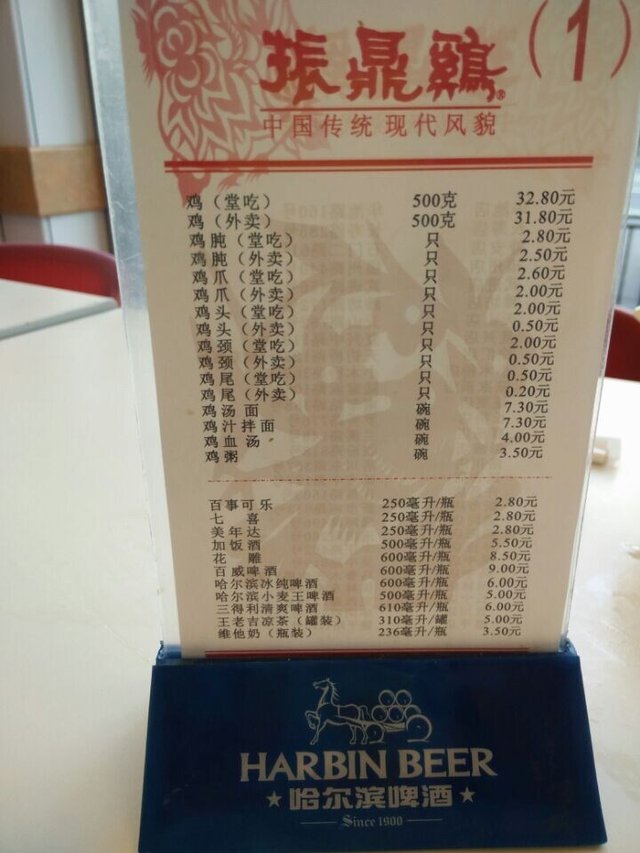 (1)
振鼎鷄®
中国传统 现代风貌
鸡（堂吃） 500克 32.80元
鸡（外卖） 500克 31.80元
鸡肫（堂吃） 只 2.80元
鸡肫（外卖） 只 2.50元
鸡爪（堂吃） 只 2.60元
鸡爪（外卖） 只 2.00元
鸡头（堂吃） 只 2.00元
鸡头（外卖） 只 0.50元
鸡颈（堂吃） 只 2.00元
鸡颈（外卖） 只 0.50元
鸡尾（堂吃） 只 0.50元
鸡尾（外卖） 只 0.20元
鸡汤面 碗 7.30元
鸡汁拌面 碗 7.30元
鸡血汤 碗 4.00元
鸡粥 碗 3.50元
百事可乐 250毫升/瓶 2.80元
七喜 250毫升/瓶 2.80元
美年达 250毫升/瓶 2.80元
加饭酒 500毫升/瓶 5.50元
花雕 600毫升/瓶 8.50元
百威啤酒 600毫升/瓶 9.00元
哈尔滨冰纯啤酒 600毫升/瓶 6.00元
哈尔滨小麦王啤酒 500毫升/瓶 5.00元
三得利清爽啤酒 610毫升/瓶 6.00元
王老吉凉茶（罐装） 310毫升/罐 5.00元
维他奶（瓶装） 236毫升/瓶 3.50元
HARBIN BEER
★哈尔滨啤酒★
Since 1900